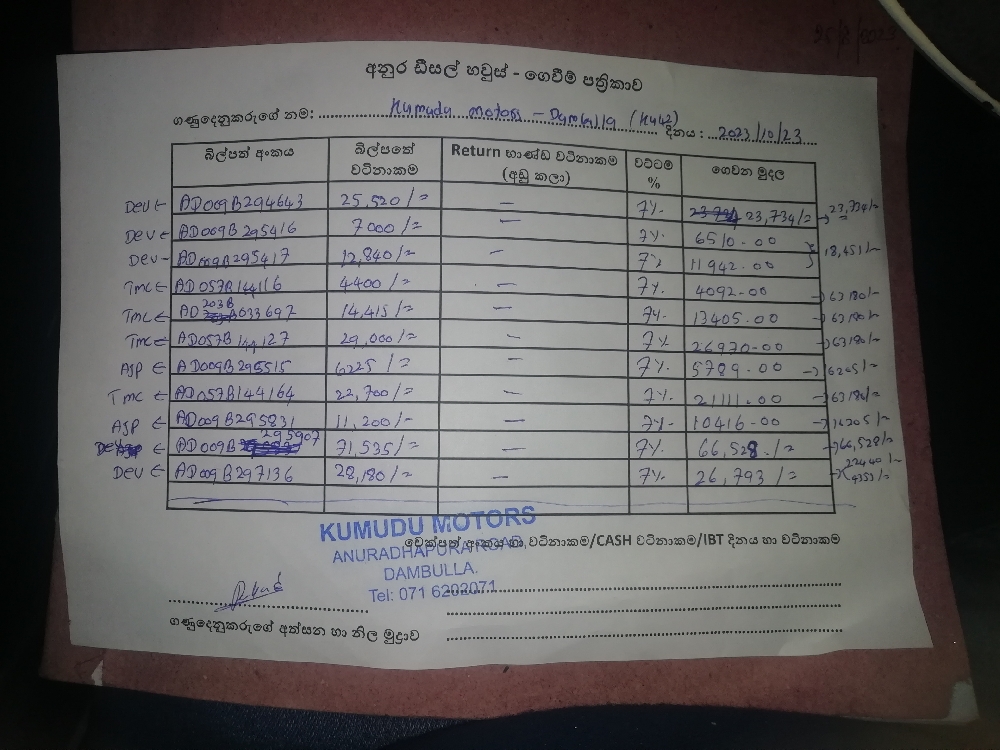 25/8/2023
අනුර ඩීසල් හවුස් - ගෙවීම් පත්‍රිකාව
ගණුදෙනුකරුගේ නම: Kumudu Motors - Dambulla (K442) දිනය : 2023/10/23
බිල්පත් අංකය බිල්පතේ වටිනාකම Return භාණ්ඩ වටිනාකම (අඩු කලා) වට්ටම % ගෙවන මුදල
Dev ← AD009B294643 25,520/= — 7% 23,734/= → 23,734/=
Dev ← AD009B295416 7000/= — 7% 6510-00
Dev - AD009B295417 12,840/= — 7% 11942-00 } 18,451/=
Tmc ← AD057B144116 4400/= — 7% 4092-00 → 63180/-
Tmc ← AD 203B 033697 14,415/= — 7% 13405-00 → 63180/-
Tmc ← AD057B144127 29,000/= — 7% 26970-00 → 63180/-
ASP ← AD009B295515 6225/= — 7% 5789-00 → 16205/-
Tmc ← AD057B144164 22,700/= — 7% 21111-00 → 63180/-
ASP ← AD009B295831 11,200/- — 7% 10416-00 → 16205/-
Dev ← AD009B295907 71,535/= — 7% 66,528-/= → 66,528/-
Dev ← AD009B297136 28,180/= — 7% 26,793/= → 22440/-
4353/-
KUMUDU MOTORS
චෙක්පත් අංකය හා වටිනාකම/CASH වටිනාකම/IBT දිනය හා වටිනාකම
ANURADHAPURA ROAD,
DAMBULLA.
Tel: 071 6202071
ගණුදෙනුකරුගේ අත්සන හා නිල මුද්‍රාව